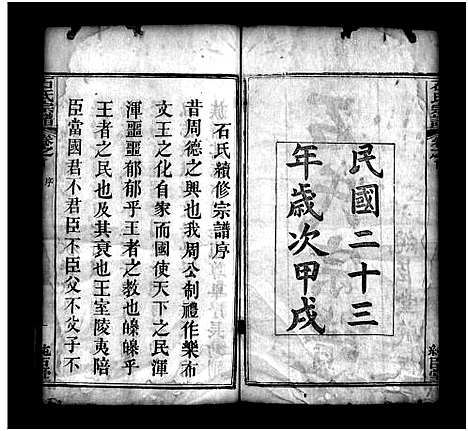 民國二十三
年歲次甲戌
石氏宗譜
石氏續修宗譜序
昔周德之興也我周公制禮作樂布
文王之化自家而國使天下之民渾
渾噩噩郁郁乎王者之教也皞皞乎
王者之民也及其衰也王室陵夷陪
臣當國君不君臣不臣父不父子不
石氏宗譜
序